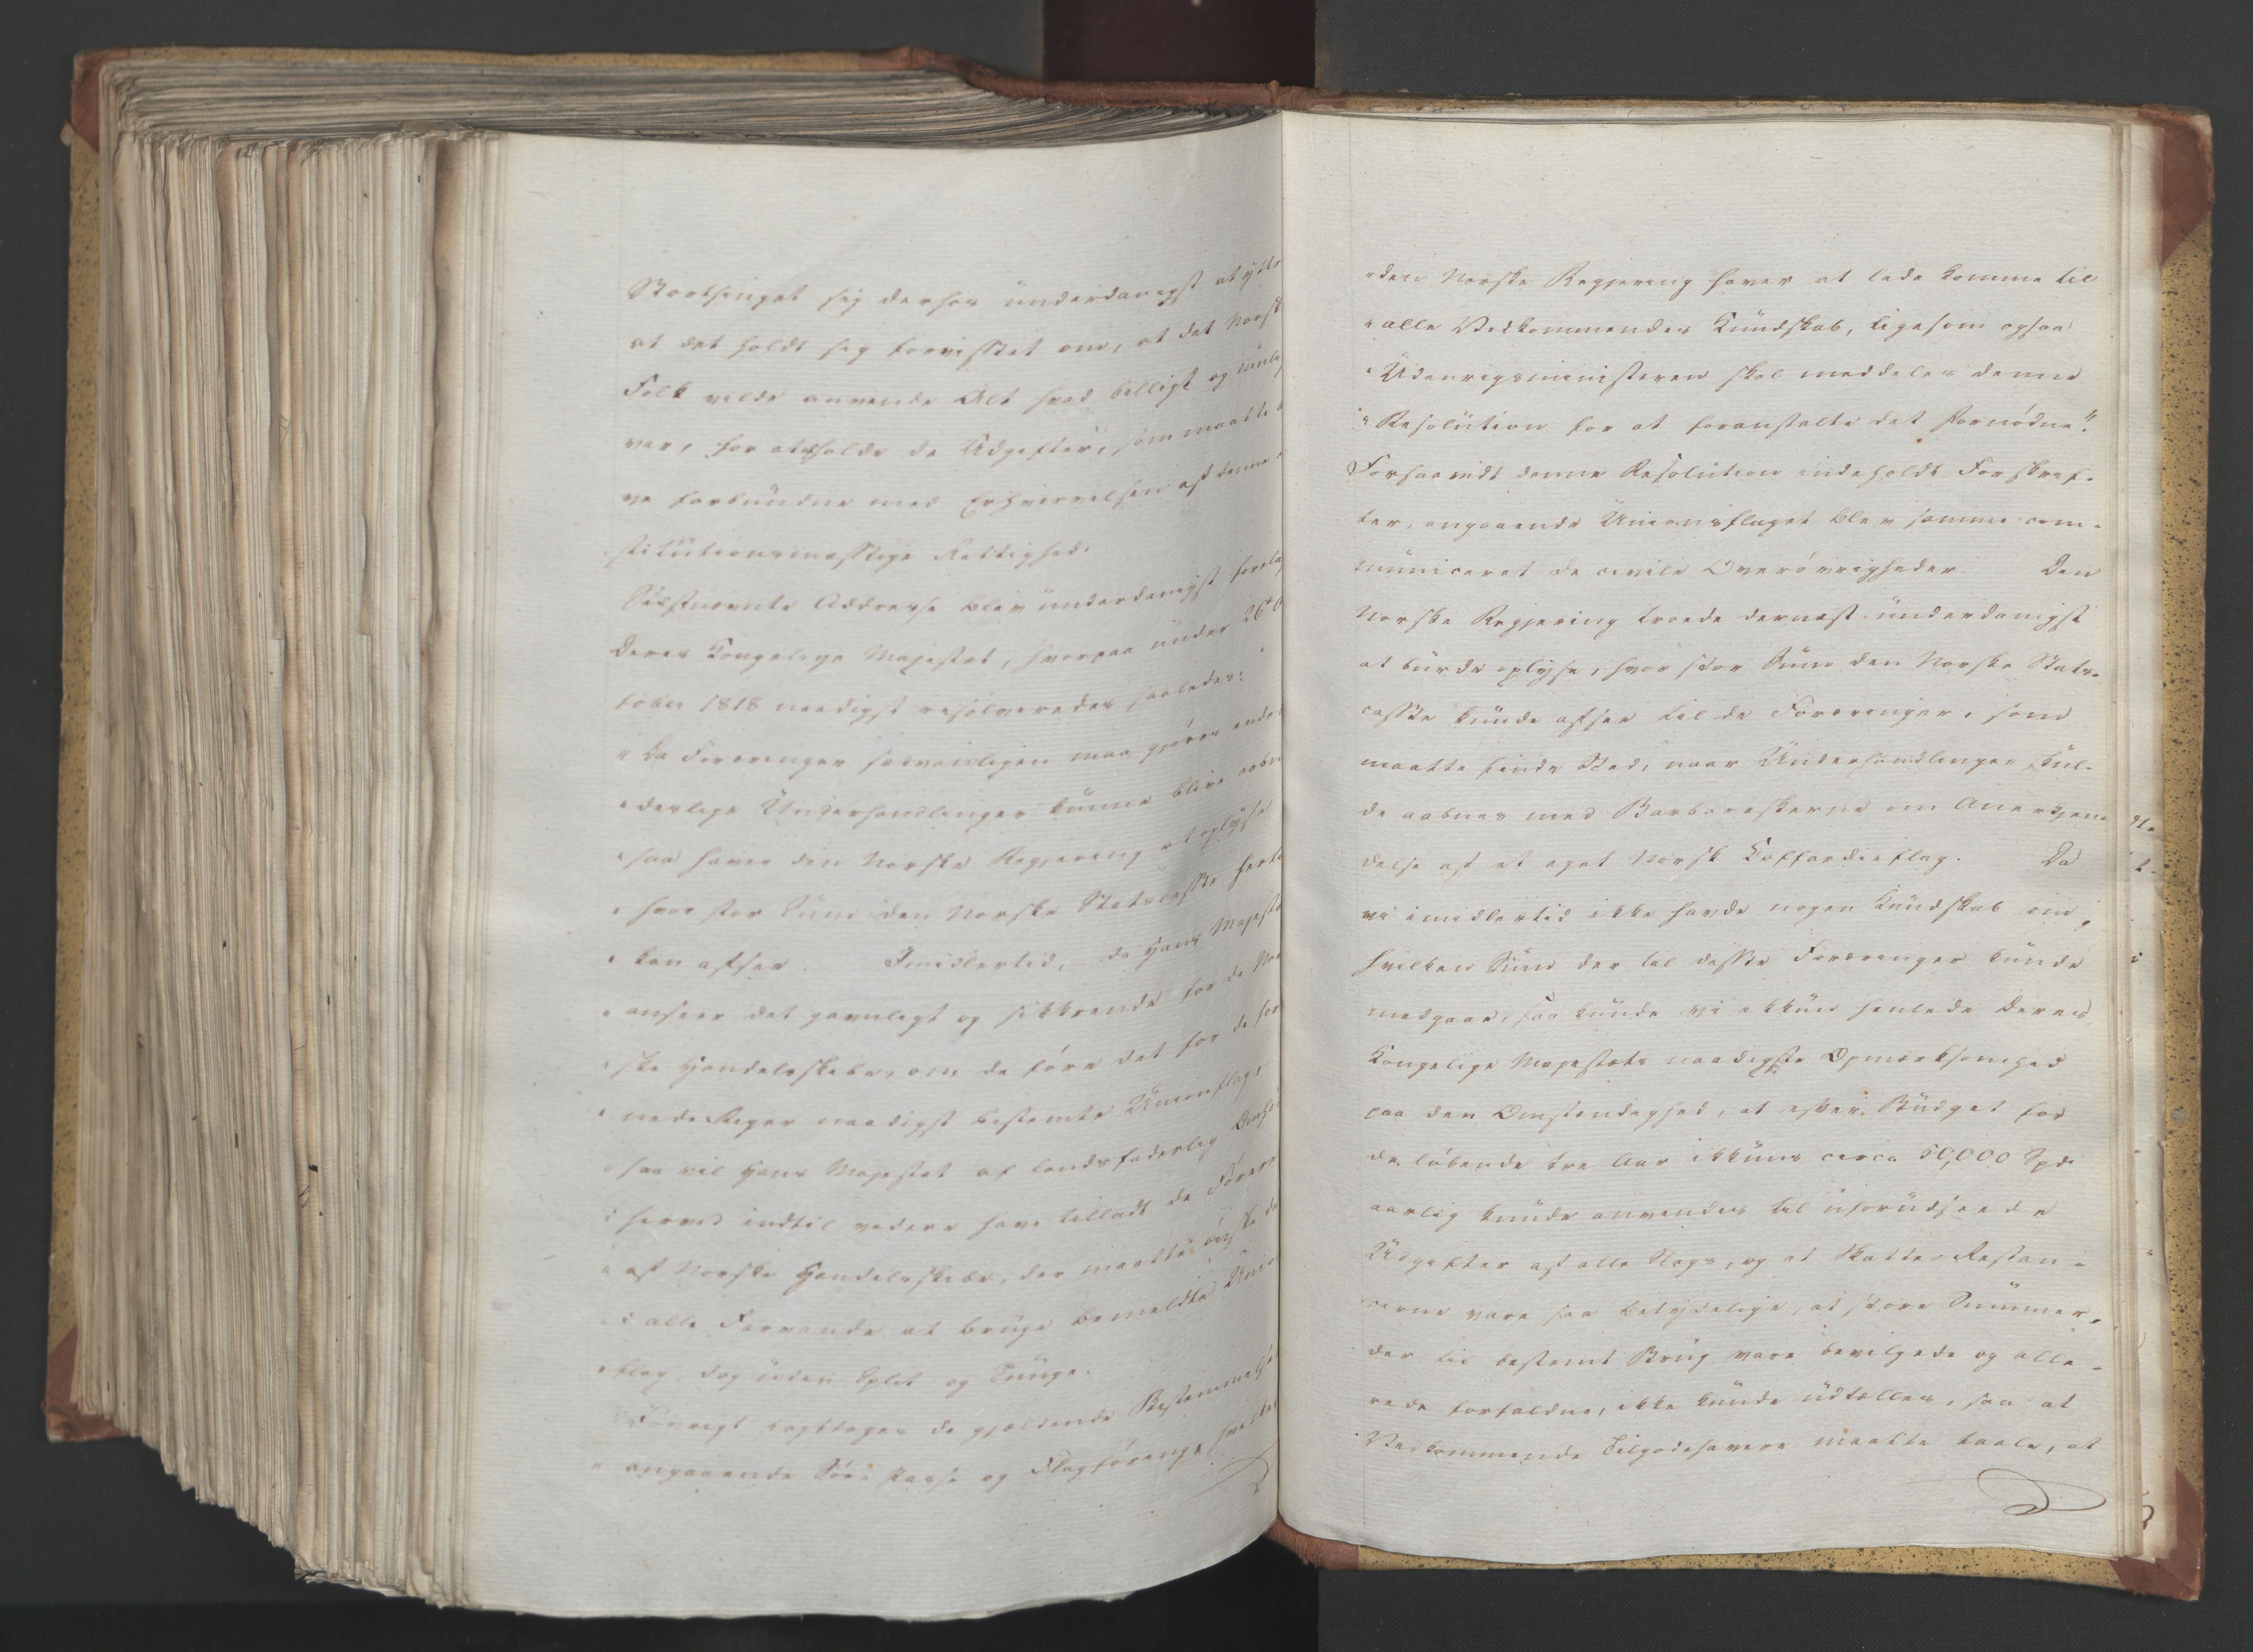 Storthinget sig derhos underdanigst at yttre
at det holdt sig forvisset om, at det Norsk
Folk vilde anvende Alt hvad billigt og muli
var, for at afholde de Udgifter, som maatte b
ve forbundne med Erhvervelsen af denne
stitutionsmæssige Rettighed.
Sidstnævnte Addresse blev underdanigst forela
Deres Kongelige Majestæt, hvorpaa under 26de O
tober 1818 naadigst resolveredes saaledes:
"Da Foræringer sædvanligen maa gjøres inden
"derlige Underhandlinger kunne blive aabn
"saa haver den Norske Regjering at oplyse
"hvor stor Sum den Norske Statscasse hertil
"kan afsee. Imidlertid, da Hans Majestæ
"anseer det gavnligt og sikkrende for de Nor
"ske Handelsskibe, om de føre det for de for
"nede Riger naadigst bestemte Unionsflag,
"saa vil Hans Majestæt af landsfaderlig Omhu
"herved indtil videre have tilladt de Førere
"af Norske Handelsskibe, der maatte ønske de
"i alle Farvande at bruge bemeldte Unio
"flag, dog uden Split og Tunge.
"Iøvrigt iagttages de gjældende Bestemmelse
"angaaende Søe Passe og Flagføringe, hvilket
"den Norske Regjering haver at lade komme til
"alle Vedkommendes Kundskab, ligesom ogsaa
"Udenrigsministeren skal meddeles denne
"Resolution for at foranstalte det Fornødne".
Forsaavidt denne Resolution indeholdt Forskrif-
ter, angaaende Unionsflaget blev samme com-
municeret de civile Overøvrigheder. Den
Norske Regjering troede dernæst underdanigst
at burde oplyse, hvor stor Sum den Norske Stats-
casse kunde afsee til de Foræringer, som
maatte finde Sted, naar Underhandlinger skul-
de aabnes med Barbareskerne om Anerkjen-
delse af et eget Norsk Koffardieflag. Da
vi imidlertid ikke havde nogen Kundskab om,
hvilken Sum der til disse Foræringer kunde
medgaae, saa kunde vi ikkun henlede Deres
Kongelige Majestæts naadigste Opmærksomhed
paa den Omstændighed, at efter Budget for
de løbende tre Aar ikkuns circa 50,000 Spd.
aarlig kunde anvendes til uforudseede
Udgifter af alle Slags, og at Skatte-Restan-
cerne vare saa betydelige, at store Summer,
der til bestemt Brug vare bevilgede og alle-
rede forfaldne, ikke kunde udtælles, saa at
Vedkommende Tilgodehavere maatte taale, at